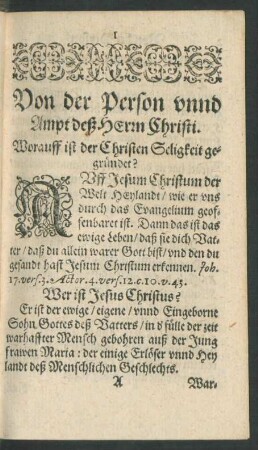 1
Von der Person vnnd
Ampt deß HErrn Christi.
Worauff ist der Christen Seligkeit ge-
gründet?
AVff Jesum Christum der
Welt Heylandt / wie er vns
durch das Evangelium geof-
fenbaret ist. Dann das ist das
ewige Leben / daß sie dich Vat-
ter / daß du allein warer Gott bist / vnd den du
gesandt hast Jesum Christum erkennen. Joh.
17. vers. 3. Actor. 4. vers. 12. c. 10. v. 43.
Wer ist Jesus Christus?
Er ist der ewige / eigene / vnnd Eingeborne
Sohn Gottes deß Vatters / in d̕ fülle der zeit
warhaffter Mensch gebohren auß der Jung
frawen Maria : der einige Erlöser vnnd Hey
landt deß Menschlichen Geschlechts.
A War-